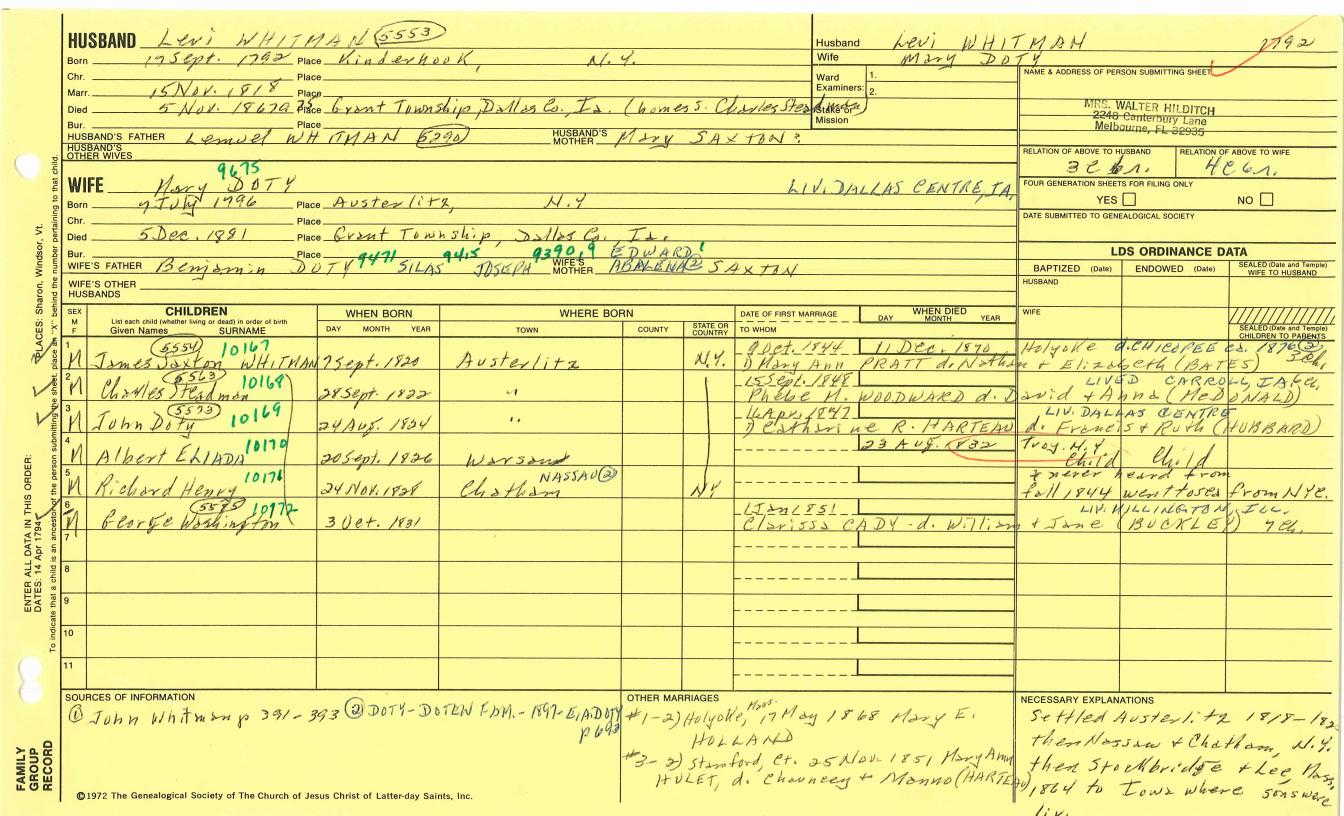 HUSBAND Levi WHITMAN 5553
Born 17 Sept. 1792 Place Kinderhook, N.Y.
Chr. Place
Marr. 15 Nov. 1818 Place
Died 5 Nov. 1867 Place Grant Township, Dallas Co., Ia. (home s. Charles Steadman)
Bur. Place
HUSBAND'S FATHER Lemuel WHITMAN 5290 HUSBAND'S MOTHER Mary SAXTON?
HUSBAND'S OTHER WIVES
9675
WIFE Mary DOTY LIV. DALLAS CENTRE, IA,
Born 7 July 1796 Place Austerlitz, N.Y
Chr. Place
Died 5 Dec. 1881 Place Grant Township, Dallas Co., Ia.
Bur. Place
WIFE'S FATHER Benjamin DOTY 9471 SILAS 9415 JOSEPH 9390,9 EDWARD 1
WIFE'S MOTHER ABALENA (2) SAXTON
WIFE'S OTHER HUSBANDS
Husband Levi WHITMAN 1792
Wife Mary DOTY
Ward Examiners: 1. 2.
Stake or Mission
NAME & ADDRESS OF PERSON SUBMITTING SHEET
MRS. WALTER HILDITCH
2248 Canterbury Lane
Melbourne, FL 32935
RELATION OF ABOVE TO HUSBAND RELATION OF ABOVE TO WIFE
3C6r. 4C6r.
FOUR GENERATION SHEETS FOR FILING ONLY
YES NO
DATE SUBMITTED TO GENEALOGICAL SOCIETY
LDS ORDINANCE DATA
BAPTIZED (Date) ENDOWED (Date) SEALED (Date and Temple) WIFE TO HUSBAND
HUSBAND
WIFE
SEALED (Date and Temple) CHILDREN TO PARENTS
SEX M F
CHILDREN
List each child (whether living or dead) in order of birth
Given Names SURNAME
WHEN BORN
DAY MONTH YEAR
WHERE BORN
TOWN COUNTY STATE OR COUNTRY
DATE OF FIRST MARRIAGE
TO WHOM
WHEN DIED
DAY MONTH YEAR
1 M 5554 10167 James Saxton WHITMAN 7 Sept. 1820 Austerlitz N.Y. 9 Oct. 1844 11 Dec. 1870 Holyoke d. CHICOPEE ca. 1876 (2)
1) Mary Ann PRATT d. Nathan + Elizabeth (BATES) 3 ch.
2 M 5563 10168 Charles Steadman 28 Sept. 1822 " 15 Sept. 1848 LIVED CARROLL, IA 6 ch.
Phebe M. WOODWARD d. David + Anna (McDONALD)
3 M 5573 10169 John Doty 24 Aug. 1824 " 16 Apr. 1847 LIV. DALLAS CENTRE
1) Catharine R. HARTEAU d. Francis + Ruth (HUBBARD)
4 M 10170 Albert ELIADA 20 Sept. 1826 Warsaw 23 Aug. 1832 Troy, N.Y.
Child Child
5 M 10171 Richard Henry 24 Nov. 1828 NASSAU (2) Chatham NY
never heard from
fall 1844 went to sea from NYC.
6 M 5575 10172 George Washington 3 Oct. 1831 1 Jan 1851 LIV. WILLINGTON, ILL.
Clarissa CADY - d. William + Jane (BUCKLEY) 7 ch.
7
8
9
10
11
SOURCES OF INFORMATION
(1) John Whitman p 391-393 (2) DOTY-DOTEN FAM.-1897-E.A.DOTY
p 692
OTHER MARRIAGES
#1-2) Holyoke, Mass. 17 May 1868 Mary E.
HOLLAND
#3-2) Stamford, Ct. 25 Nov. 1851 Mary Ann
HULET, d. Chauncey + Manna (HARTEAU)
NECESSARY EXPLANATIONS
Settled Austerlitz 1818-182
then Nassau & Chatham, N.Y.
then Stockbridge & Lee, Mass.
1864 to Iowa where sons were
liv.
ENTER ALL DATA IN THIS ORDER:
DATES: 14 Apr 1794 PLACES: Sharon, Windsor, Vt.
To indicate that a child is an ancestor of the person submitting the sheet, place an "X" behind the number pertaining to that child.
FAMILY GROUP RECORD
©1972 The Genealogical Society of The Church of Jesus Christ of Latter-day Saints, Inc.